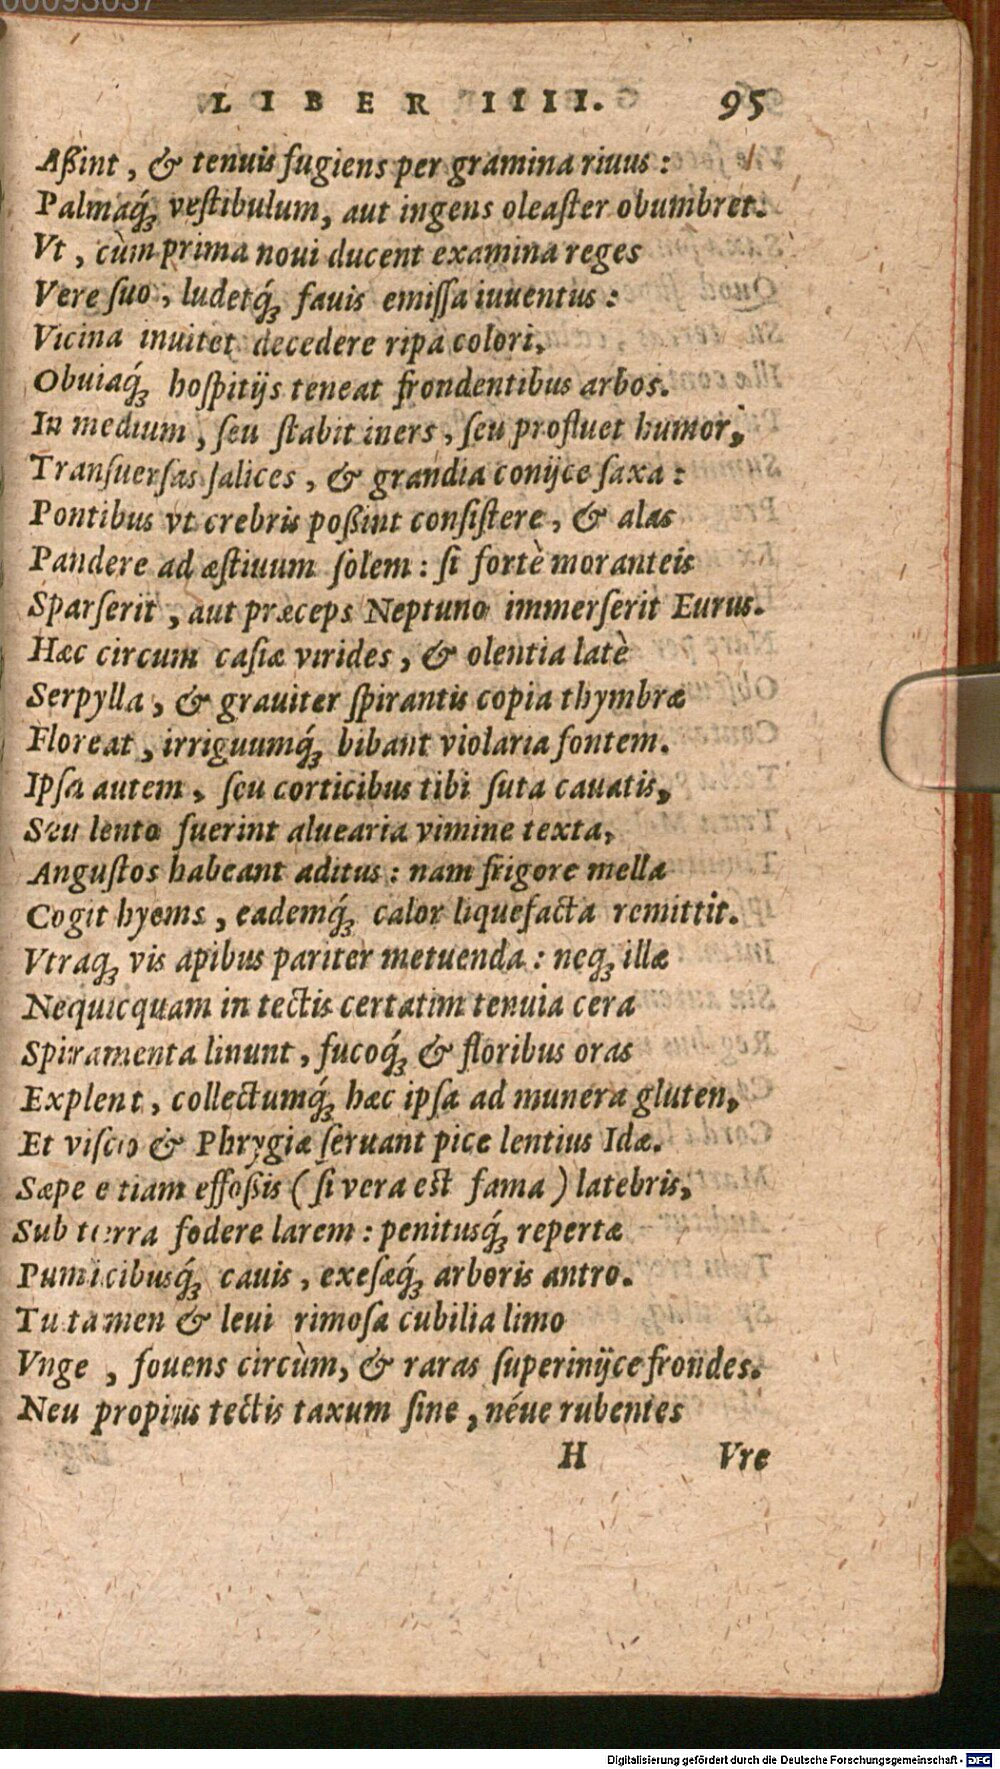 00093037
LIBER IIII. 95
Aßint, & tenuis fugiens per gramina riuus:
Palmaq́ꝫ vestibulum, aut ingens oleaster obumbret.
Vt, cùm prima noui ducent examina reges
Vere suo, ludetq́ꝫ fauis emissa iuuentus:
Vicina inuitet decedere ripa colori,
Obuiaq́ꝫ hospitijs teneat frondentibus arbos.
In medium, seu stabit iners, seu profluet humor,
Transuersas salices, & grandia conijce saxa:
Pontibus vt crebris poßint consistere, & alas
Pandere ad æstiuum solem: si fortè moranteis
Sparserit, aut præceps Neptuno immerserit Eurus.
Hæc circum casiæ virides, & olentia latè
Serpylla, & grauiter spirantis copia thymbræ
Floreat, irriguumq́ꝫ bibant violaria fontem.
Ipsa autem, seu corticibus tibi suta cauatis,
Seu lento fuerint aluearia vimine texta,
Angustos habeant aditus: nam frigore mella
Cogit hyems, eademq́ꝫ calor liquefacta remittit.
Vtraqꝫ vis apibus pariter metuenda: neqꝫ illæ
Nequicquam in tectis certatim tenuia cera
Spiramenta linunt, fucoq́ꝫ & floribus oras
Explent, collectumq́ꝫ hæc ipsa ad munera gluten,
Et visco & Phrygiæ seruant pice lentius Idæ.
Sæpe etiam effoßis (si vera est fama) latebris,
Sub terra fodere larem: penitusq́ꝫ repertæ
Pumicibusq́ꝫ cauis, exesæq́ꝫ arboris antro.
Tu tamen & leui rimosa cubilia limo
Vnge, fouens circùm, & raras superinijce frondes.
Neu propius tectis taxum sine, néue rubentes
H Vre
Digitalisierung gefördert durch die Deutsche Forschungsgemeinschaft - DFG